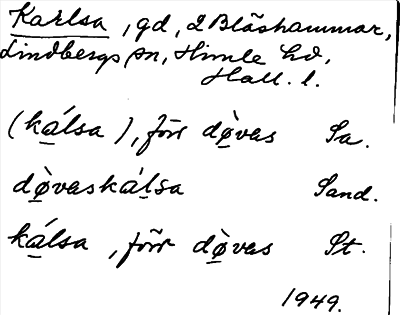 Karlsa, gd, 2 Blåshammar,
Lindbergs sn, Himle hd,
Hall. l.
(ká̱lsa), förr dø̱̀vas Sa.
dø̱̀vaská̱lsa Sand.
ká̱lsa, förr dø̱̀vas St.
1949.